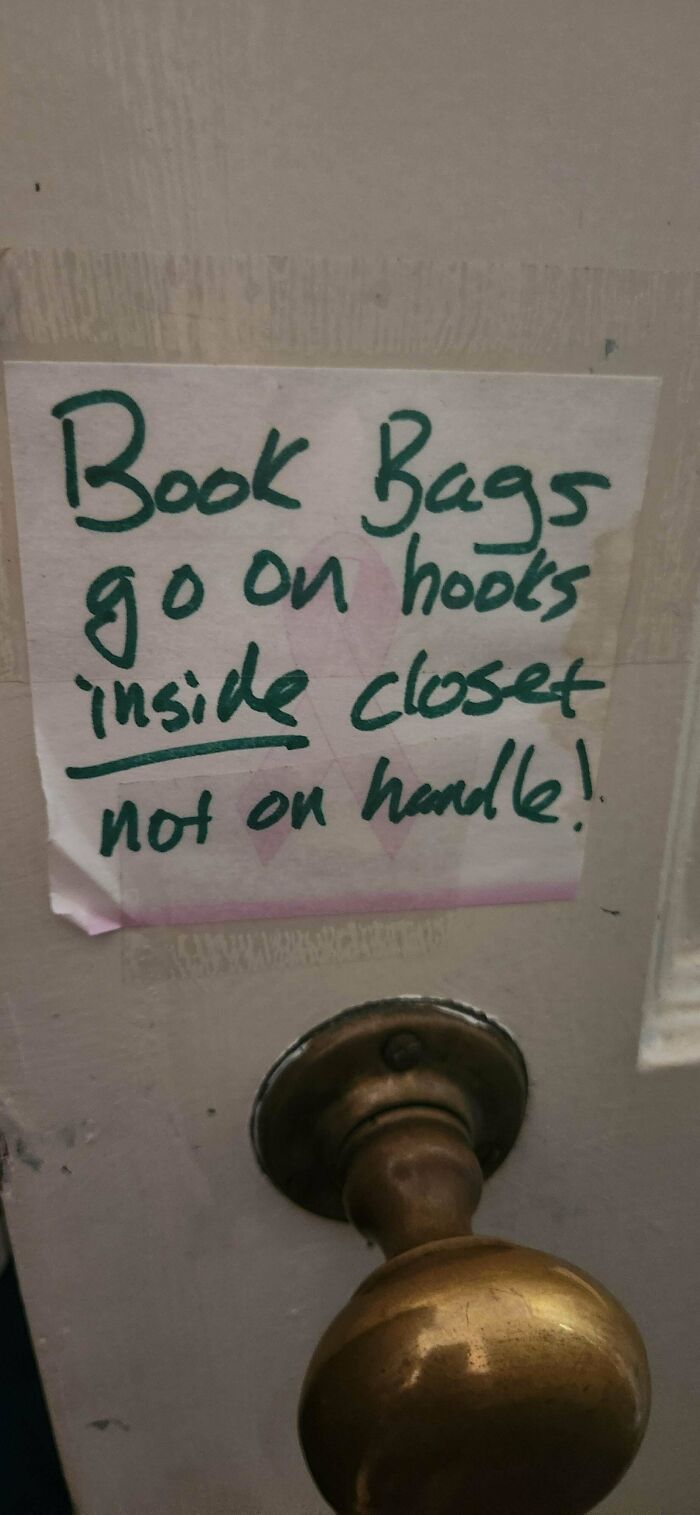 Book Bags
go on hooks
inside closet
not on handle!